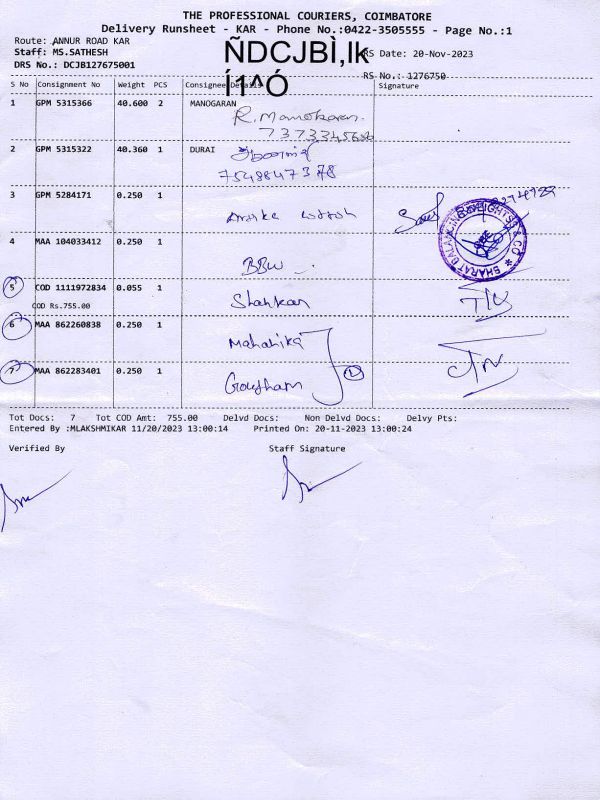 THE PROFESSIONAL COURIERS, COIMBATORE
Delivery Runsheet - KAR - Phone No.:0422-3505555 - Page No.:1
Route: ANNUR ROAD KAR
Staff: MS.SATHESH
DRS No.: DCJB127675001
ÑDCJBÌ,Ik
Í1^Ó
RS Date: 20-Nov-2023
RS No.: 1276750
S No Consignment No Weight PCS Consignee Details Signature
1 GPM 5315366 40.600 2 MANOGARAN
R. Manokaran.
2 GPM 5315322 40.360 1 DURAI
7548847378
3 GPM 5284171 0.250 1
4 MAA 104033412 0.250 1
BBW
5 COD 1111972834 0.055 1
COD Rs.755.00
Shankar
6 MAA 862260838 0.250 1
Mahanika
7 MAA 862283401 0.250 1
Gowtham
1
Tot Docs: 7 Tot COD Amt: 755.00 Delvd Docs: Non Delvd Docs: Delvy Pts:
Entered By :MLAKSHMIKAR 11/20/2023 13:00:14 Printed On: 20-11-2023 13:00:24
Verified By Staff Signature